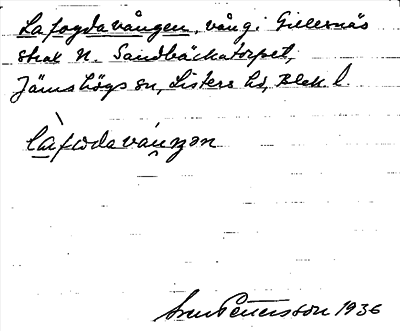 Lafogdavången, vång i Gillesnäs
strax N. Sandbäckatorpet,
Jämshögs sn, Listers hd, Blek. l.
làfωdaváŋŋən
Sven Petersson 1936